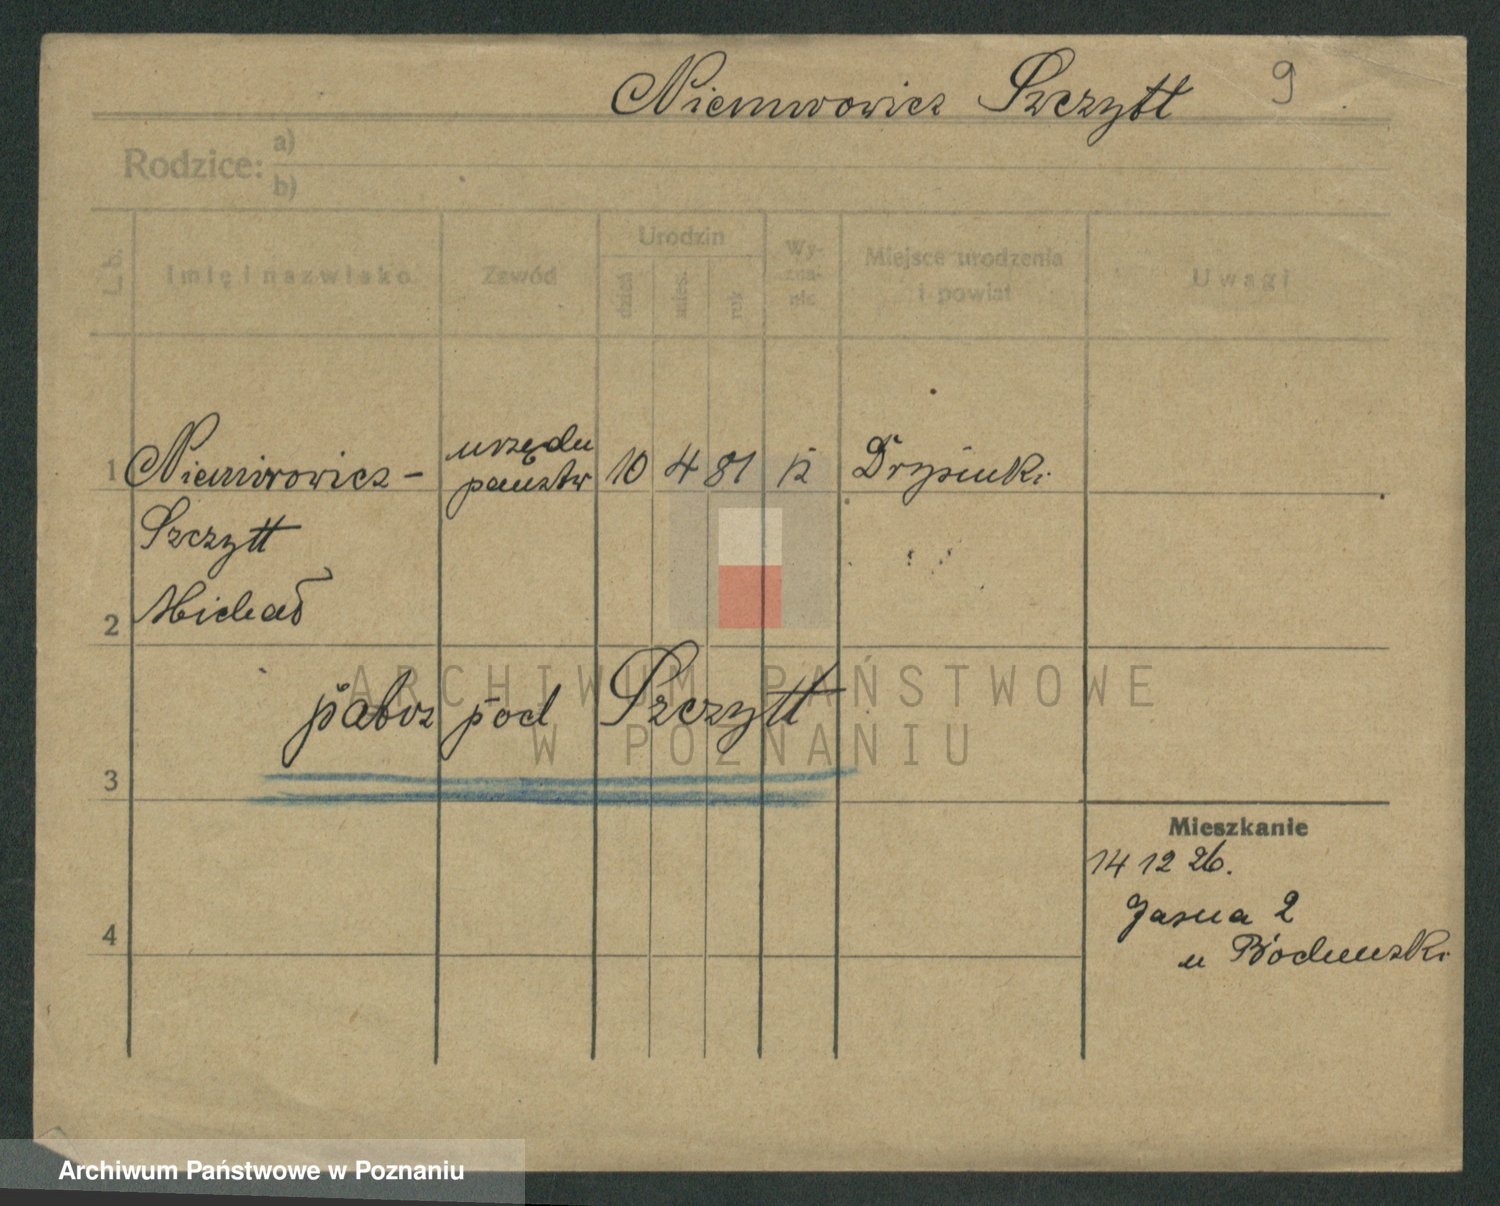 Niemirowicz Szczytt 9
Rodzice: a)
b)
L. b.
Imię i nazwisko
Zawód
Urodzin
dzień
mies.
rok
Wy-
zna-
nie
Miejsce urodzenia
i powiat
Uwagi
1 Niemirowicz- urzędn 10 4 81 k
państw
Szczytt
Michał
2
pod Szczytt
3
Mieszkanie
14 12 26.
4
Jasna 2
u
ARCHIWUM PAŃSTWOWE
W POZNANIU
Archiwum Państwowe w Poznaniu